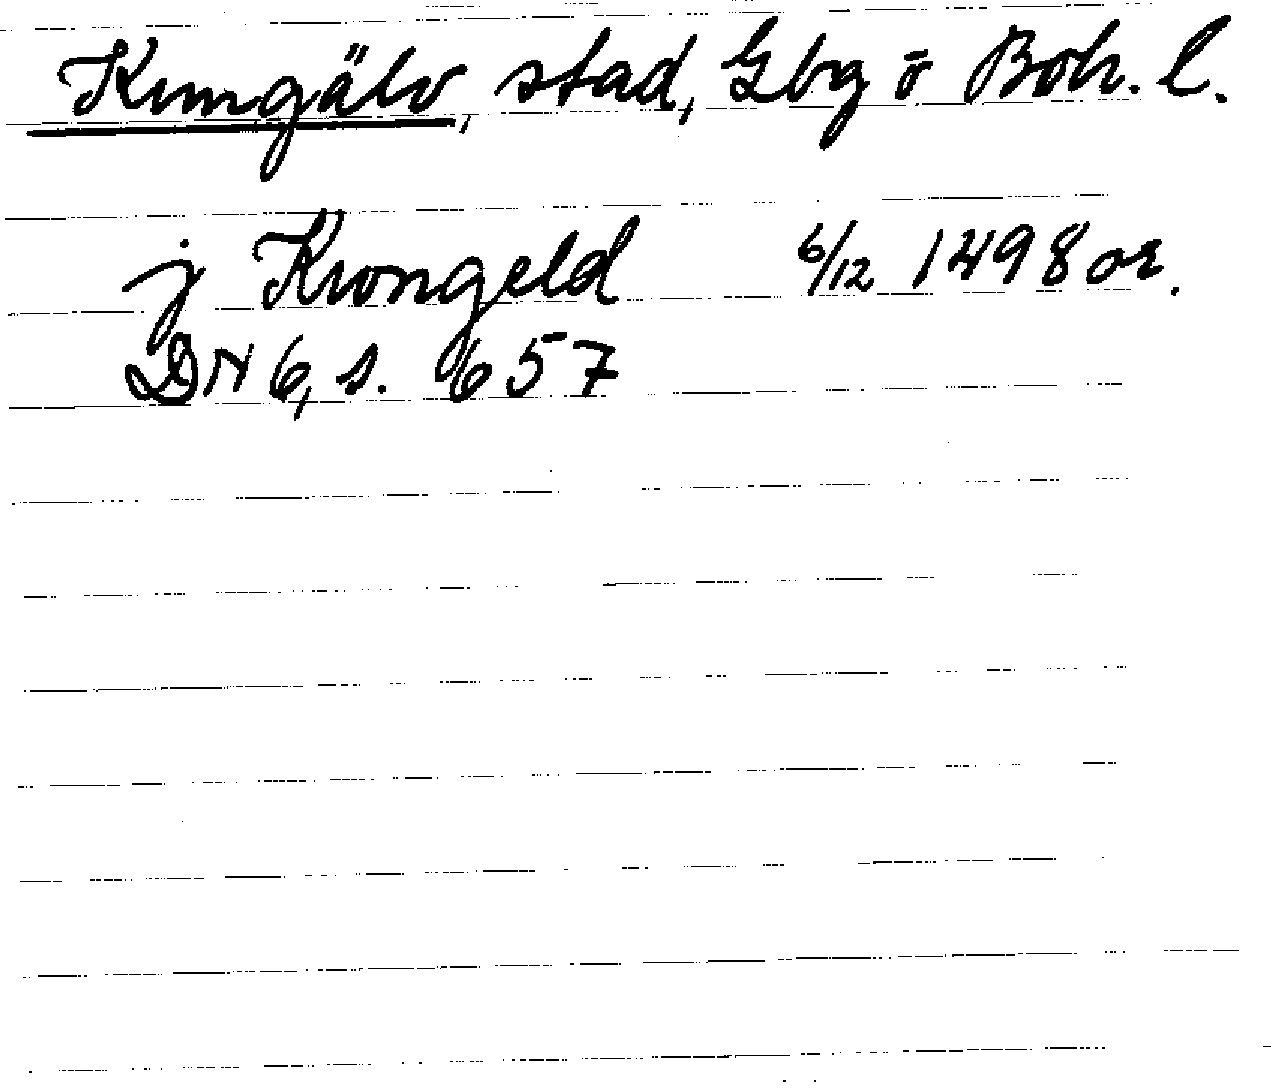 Kungälv, stad, Gbg o Boh. l.
j Krongeld 6/12 1498 or.
DN 6, s. 657